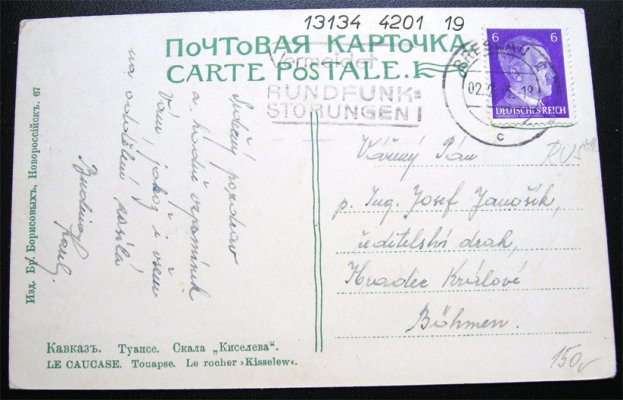 13134 4201 19
ПоЧТоВАЯ КАРТоЧКА
CARTE PoSTALE.
Vermeidet
RUNDFUNK=
STÖRUNGEN!
BRESLAU
02.
c
6 6
DEUTSCHES REICH
Srdečný pozdrav
a hodně vzpomínek
Vám jakož i všem
na oddělení zasílá
Vážný Pán
p. Ing. Josef Janošík,
ředitelství drah,
Hradec Králové
Böhmen.
150,-
Изд. Бр. Борисовыхъ, Новороссійскъ. 67
Кавказъ. Туапсе. Скала „Киселева“.
LE CAUCASE. Touapse. Le rocher ›Kisselew‹.